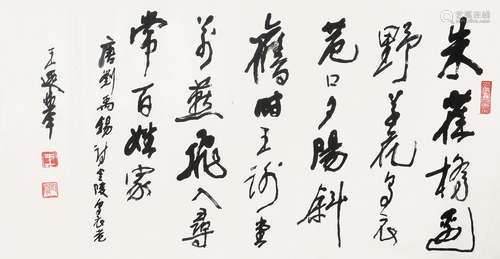 朱雀橋邊
野草花烏衣
巷口夕陽斜
舊時王謝堂
前燕飛入尋
常百姓家
唐劉禹錫詩金陵烏衣巷
王遐舉